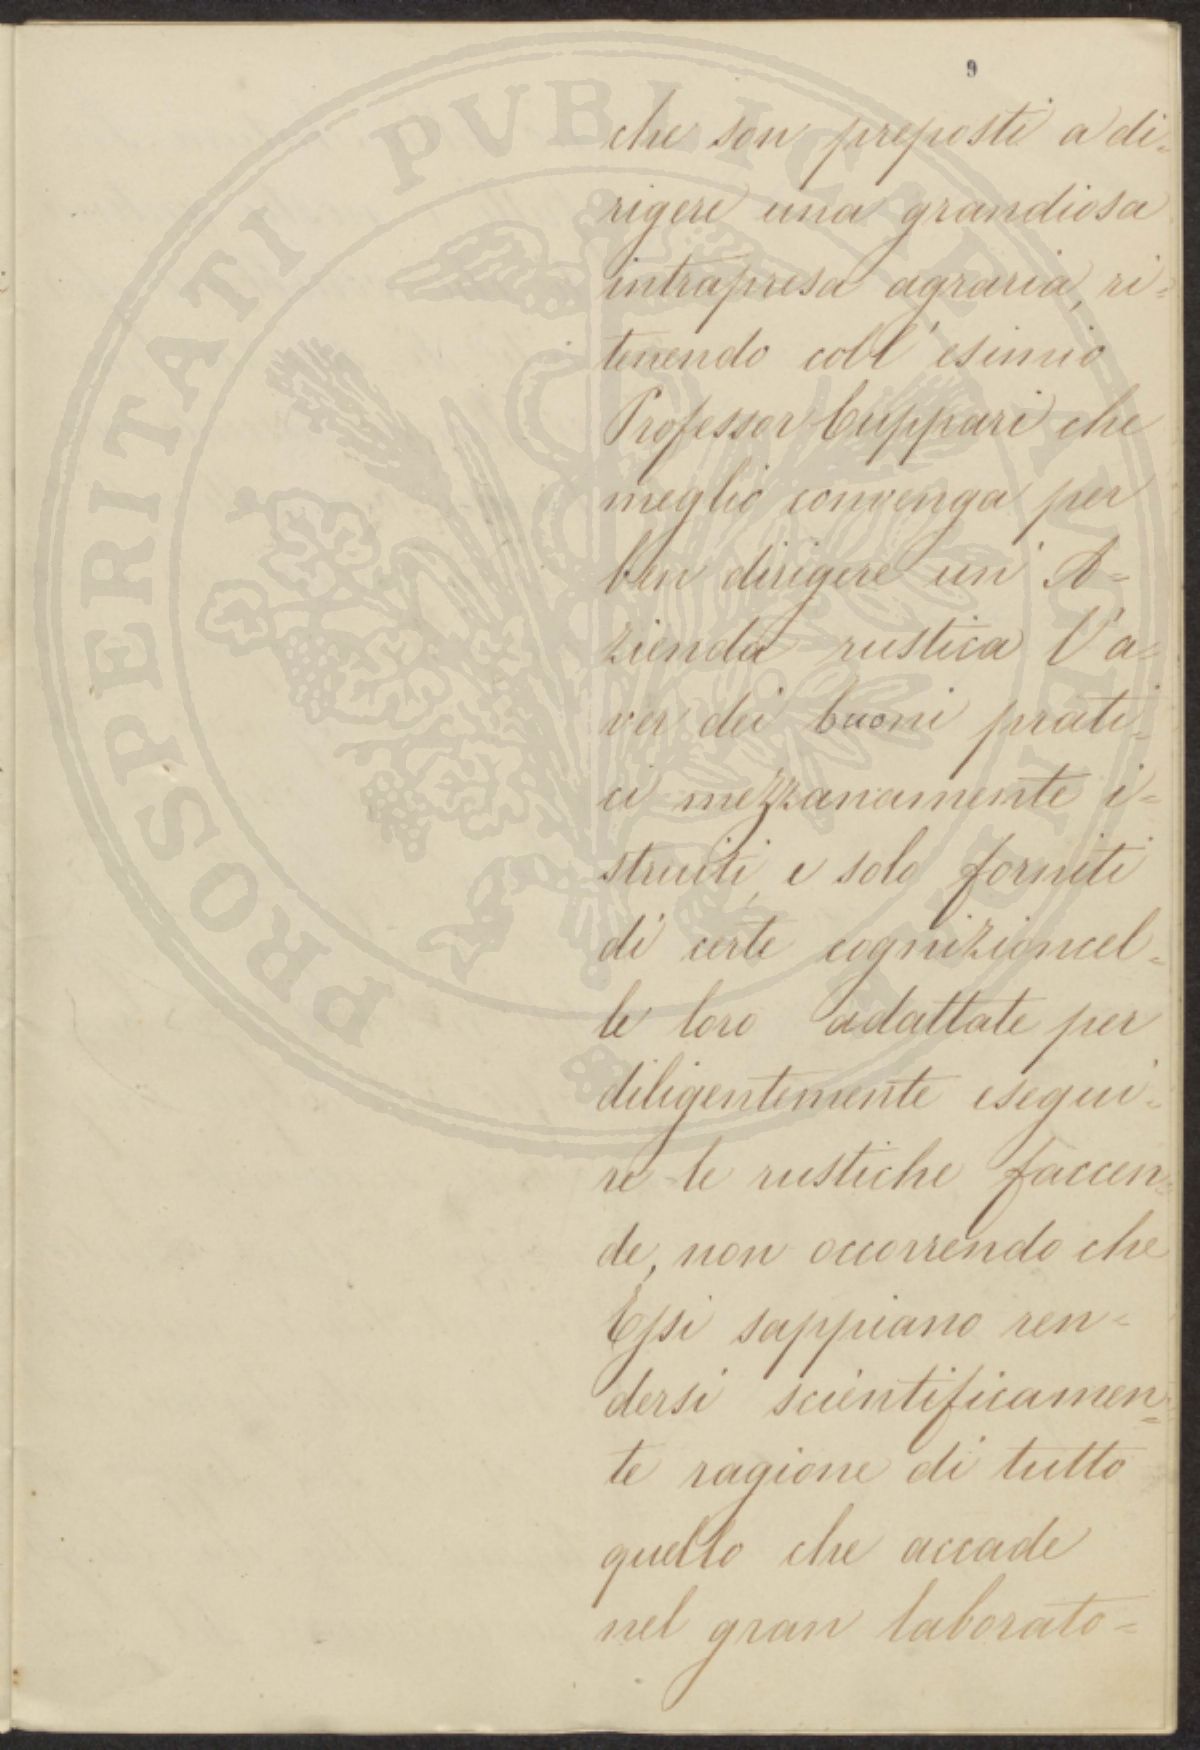 9
che son preposti a di=
rigere una grandiosa
intrapresa agraria, ri=
tenendo coll' esimio
Professor Cuppari che
meglio convenga per
ben dirigere un' A=
zienda rustica l'a=
ver dei buoni prati=
ci mezzanamente i=
struiti, e solo forniti
di certe cognizioncel=
le loro adattate per
diligentemente esegui=
re le rustiche faccen=
de, non occorrendo che
Essi sappiano ren=
dersi scientificamen=
te ragione di tutto
quello che accade
nel gran laborato=
PROSPERITATI PVBLICAE AVGENDAE